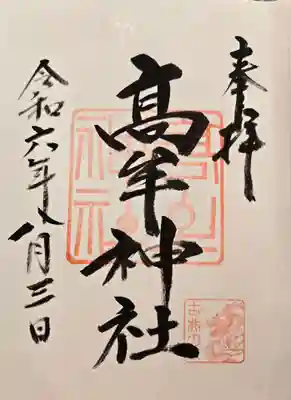 奉拝
髙牟神社
令和六年八月三日